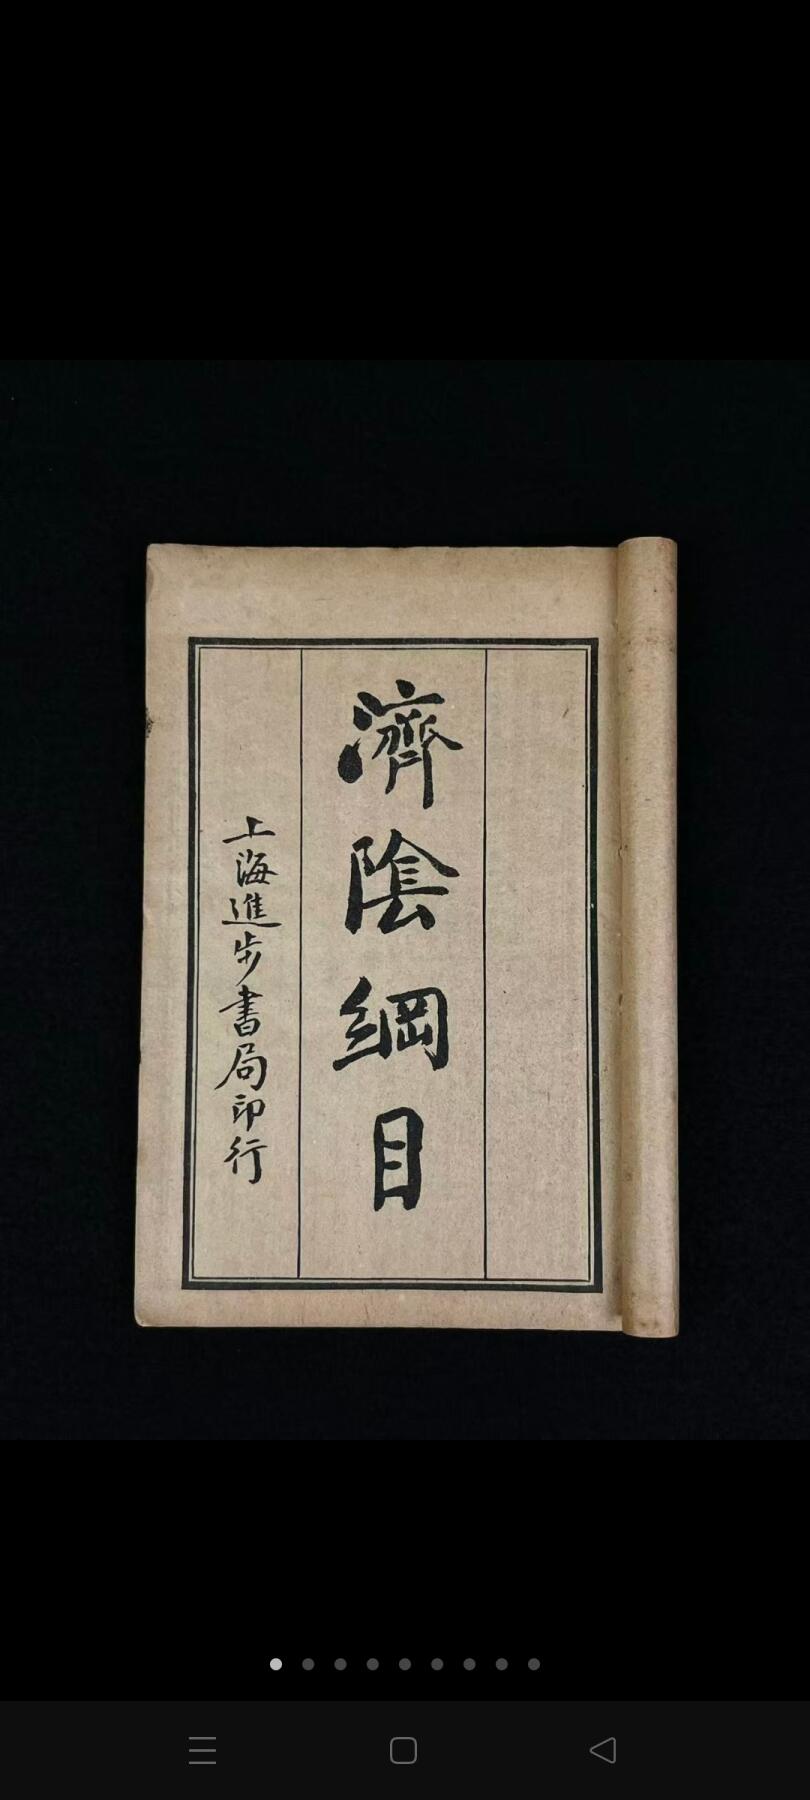 濟陰綱目
上海進步書局印行